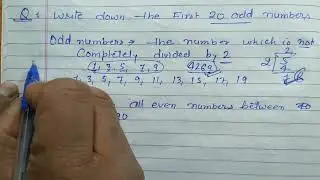 Q: Write down the first 20 odd numbers
Odd numbers → the number which is not
completely divided by 2
1, 3, 5, 7, 9 4269 2
1, 3, 5, 7, 9, 11, 13, 15, 17, 19
all even numbers between
20